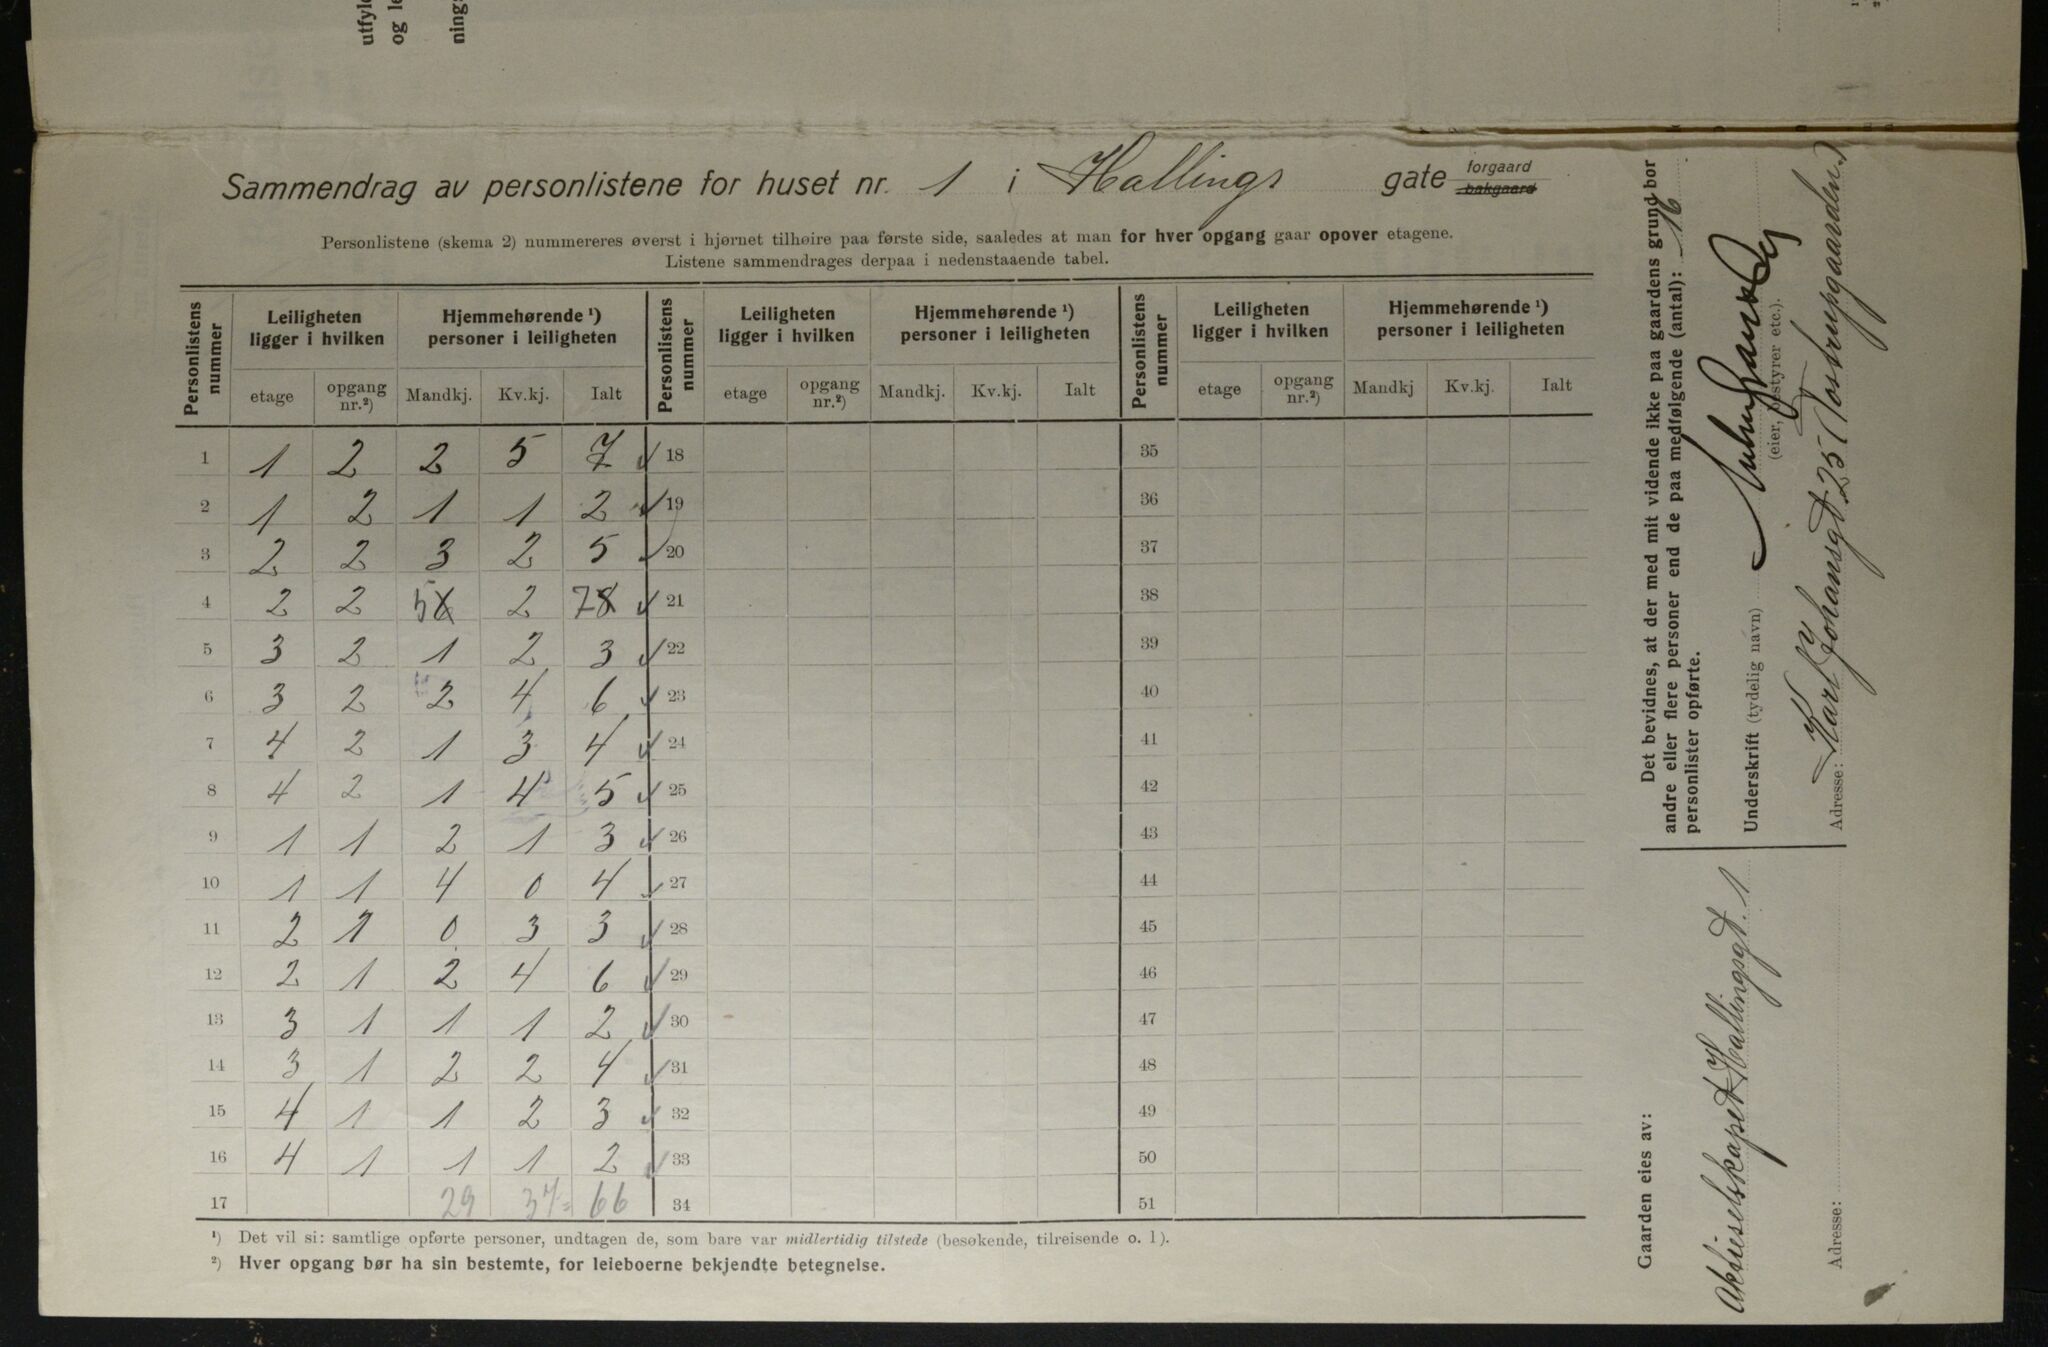 utfyl
og le
ning
Sammendrag av personlistene for huset nr. 1 i Hallings gate forgaard bakgaard
Personlistene (skema 2) nummereres øverst i hjørnet tilhøire paa første side, saaledes at man for hver opgang gaar opover etagene.
Listene sammendrages derpaa i nedenstaaende tabel.
Personlistens nummer | Leiligheten ligger i hvilken | Hjemmehørende ¹) personer i leiligheten | Personlistens nummer | Leiligheten ligger i hvilken | Hjemmehørende ¹) personer i leiligheten | Personlistens nummer | Leiligheten ligger i hvilken | Hjemmehørende ¹) personer i leiligheten
etage | opgang nr.²) | Mandkj. | Kv.kj. | Ialt | etage | opgang nr.²) | Mandkj. | Kv.kj. | Ialt | etage | opgang nr.²) | Mandkj | Kv.kj. | Ialt
1 | 1 | 2 | 2 | 5 | 7 | 18 | 35
2 | 1 | 2 | 1 | 1 | 2 | 19 | 36
3 | 2 | 2 | 3 | 2 | 5 | 20 | 37
4 | 2 | 2 | 5 | 2 | 7 8 | 21 | 38
5 | 3 | 2 | 1 | 2 | 3 | 22 | 39
6 | 3 | 2 | 2 | 4 | 6 | 23 | 40
7 | 4 | 2 | 1 | 3 | 4 | 24 | 41
8 | 4 | 2 | 1 | 4 | 5 | 25 | 42
9 | 1 | 1 | 2 | 1 | 3 | 26 | 43
10 | 1 | 1 | 4 | 0 | 4 | 27 | 44
11 | 2 | 1 | 0 | 3 | 3 | 28 | 45
12 | 2 | 1 | 2 | 4 | 6 | 29 | 46
13 | 3 | 1 | 1 | 1 | 2 | 30 | 47
14 | 3 | 1 | 2 | 2 | 4 | 31 | 48
15 | 4 | 1 | 1 | 2 | 3 | 32 | 49
16 | 4 | 1 | 1 | 1 | 2 | 33 | 50
17 | 29 | 37 = | 66 | 34 | 51
¹) Det vil si: samtlige opførte personer, undtagen de, som bare var midlertidig tilstede (besøkende, tilreisende o. l).
²) Hver opgang bør ha sin bestemte, for leieboerne bekjendte betegnelse.
Det bevidnes, at der med mit vidende ikke paa gaardens grund bor
andre eller flere personer end de paa medfølgende (antal): 16
personlister opførte.
Underskrift (tydelig navn)
(eier, bestyrer etc.).
Adresse: Karl Johansgt. 25 (Tostrupgaarden)
Gaarden eies av:
Aktieselskapet Hallingsgt. 1
Adresse: